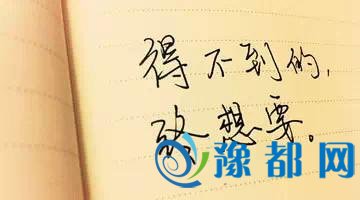 得不到的，
致想要。
豫都网